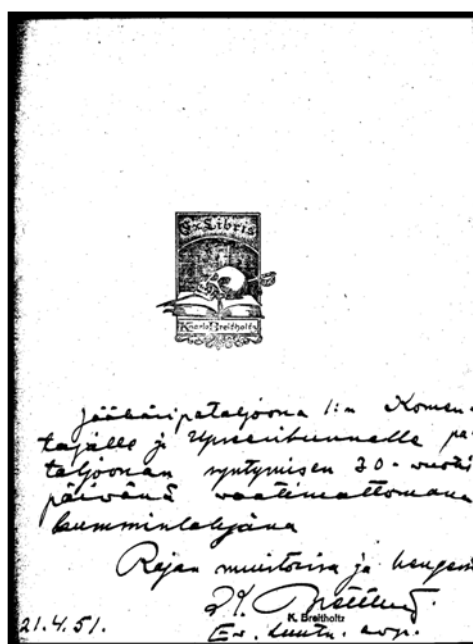 Ex Libris
Knarlo Breitholtz
Jääkäripataljoona 1:n Komen-
tajalle ja Upseerikunnalle pa-
taljoonan syntymisen 30-vuoti
päivänä vaatimattomana
kumminlahjana
Rajan muistoissa ja
K. Breitholtz
21.4.51.
Ev.